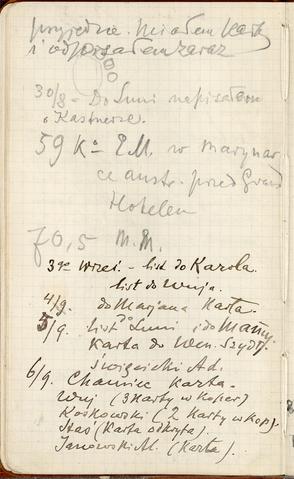 przyjedzie. Miałem kartkę
i odpisałem zaraz
30/8 - Do Luni napisałem
o Kastnerze.
59 Ko E.M. w marynar
ce austr. przed Grand
Hotelem
70,5 M.M.
3go wrześ. - list do Karola.
list do Wuja.
4/9. do Marjana Karta.
5/9. list do Luni i do Mamy
Karta do Wen. Szydł.
Święcicki Ad.
6/9. Chamiec Kartka.
Wuj (3 Karty w Koper)
Koskowski (2 Karty w Kop).
Staś (Karta odkryta).
Janowski M. (Karta).